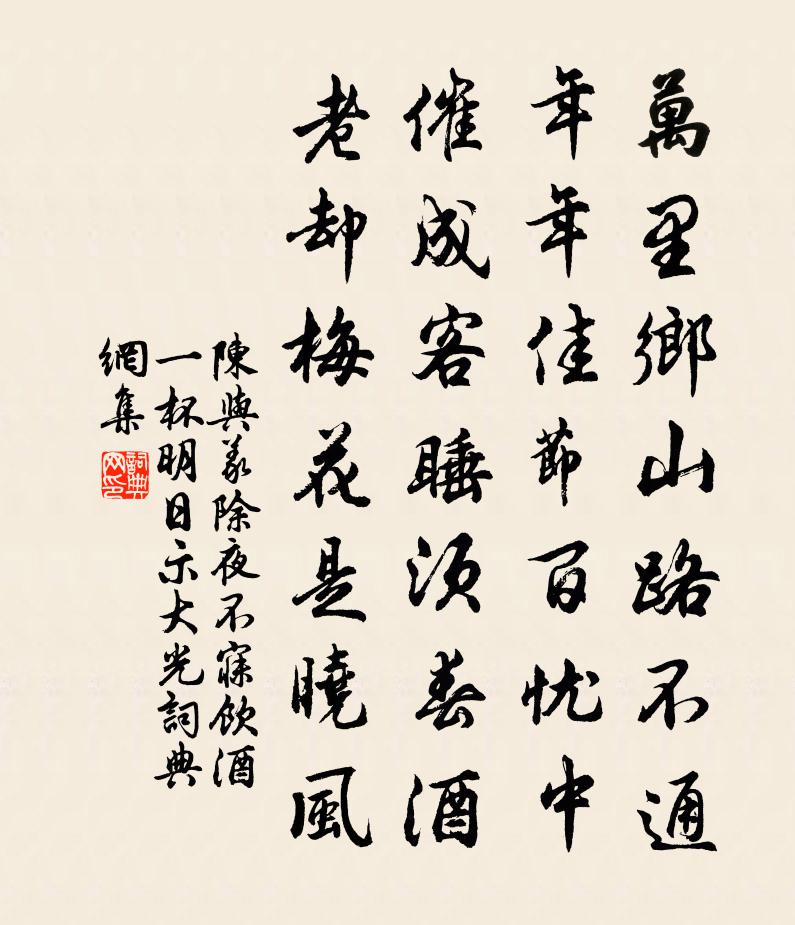 萬里鄉山路不通
年年佳節百忧中
催成客睡須春酒
老却梅花是曉風
陳與義除夜不寐飲酒
一杯明日示大光詞典
網集
詞典网印